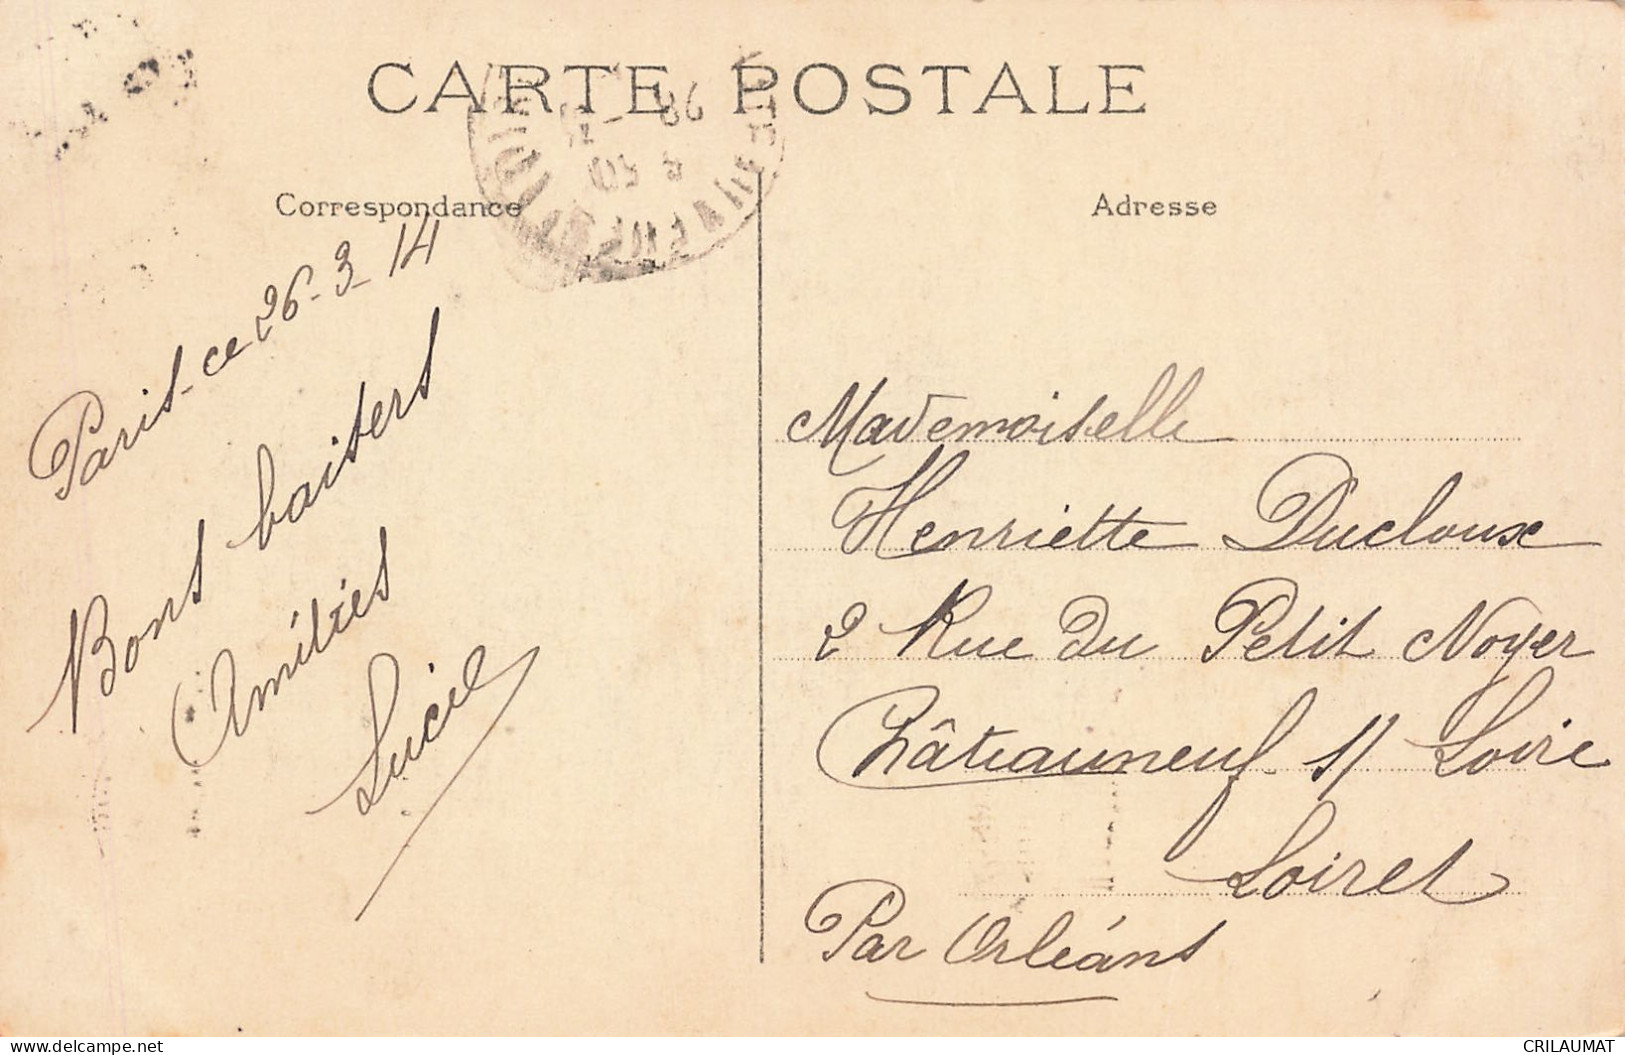 CARTE POSTALE
Correspondance
Adresse
Paris - ce 26-3-14
Bons baisers
Amitiés
Lucie
Mademoiselle
Henriette Ducloux
2 Rue du Petit Noyer
Châteauneuf s/ Loire
Loiret
Par Orléans
delcampe.net
CRILAUMAT